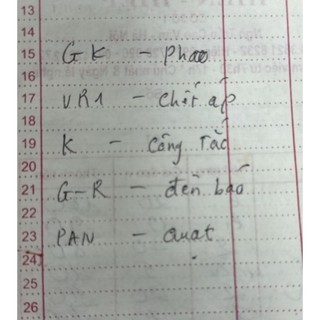 13
14
15 GK - phao
16
17 VR1 - chiết áp
18
19 K - công tắc
20
21 G-R - đèn báo
22
23 PAN - quạt
24
25
26